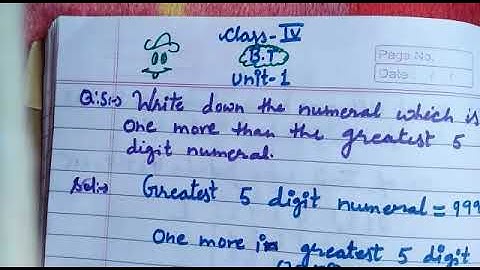 Class-IV
B.T
Unit-1
Page No.
Date / /
Q:5:-> Write down the numeral which is
one more than the greatest 5
digit numeral.
Sol:-> Greatest 5 digit numeral = 999
One more in greatest 5 digit